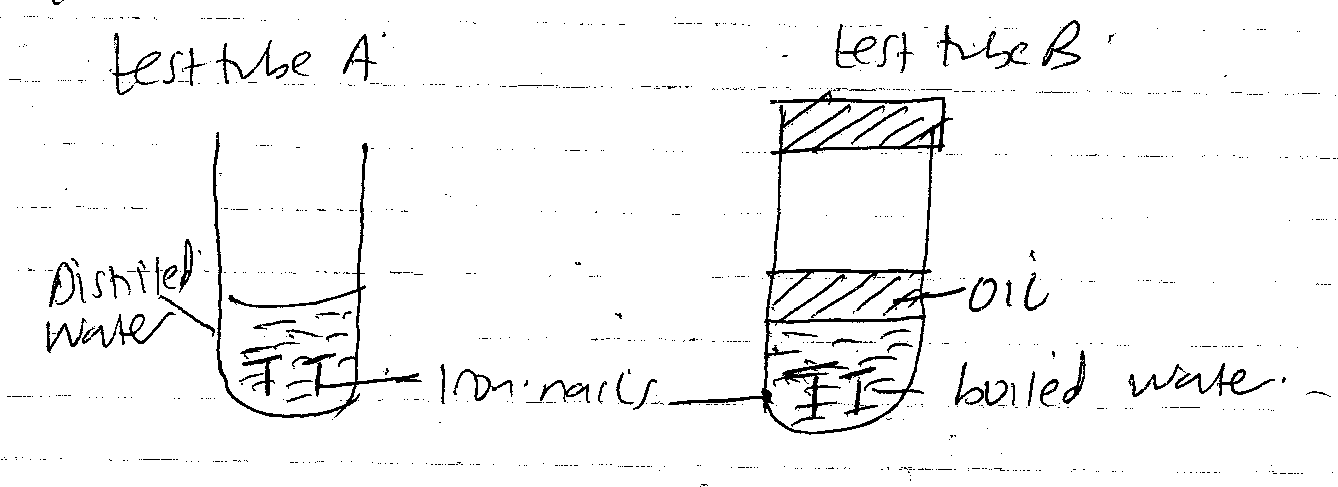 test tube A
test tube B
Distilled
water
oil
Iron nails
boiled water.